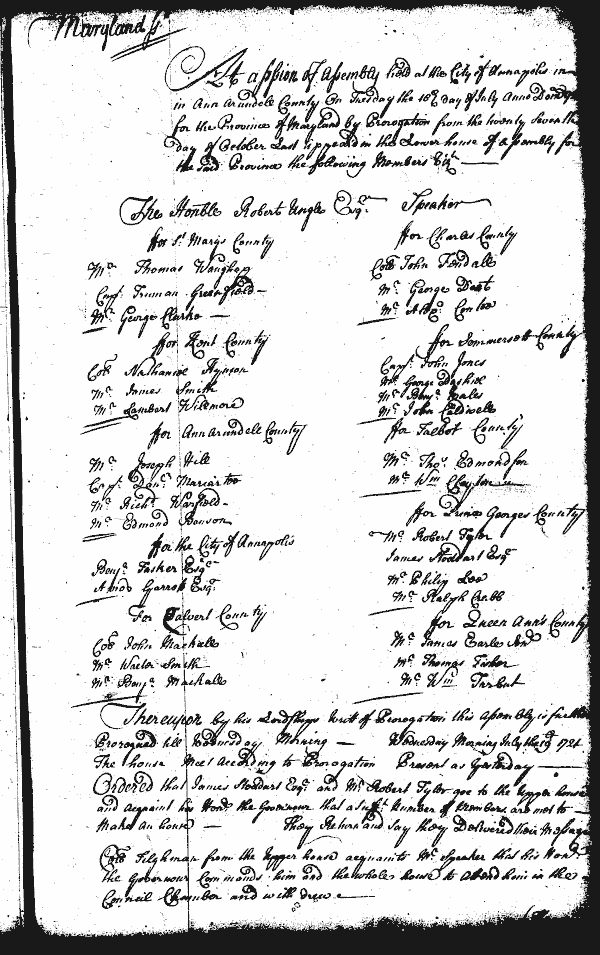 Maryland ss
At a session of Assembly held at the City of Annapolis
in Ann Arundell County On Tuesday the 18th day of July Anno Domini
for the Province of Maryland by Prorogation from the twenty seventh
day of October Last appeared in the Lower house of Assembly for
the said Province the following Members Viz
The Honble Robert Ungle Esqr Speaker
ffor St Marys County
Mr Thomas Waughop
Capt Truman Greenfield
Mr George Clarke
ffor Kent County
Colo Nathaniel Hynson
Mr James Smith
Mr Lambert Wilmore
ffor Ann Arundell County
Mr Joseph Hill
Capt Danl Mariartee
Mr Richd Warfield
Mr Edmond Benson
ffor the City of Annapolis
Benja Tasker Esqr
Amos Garrett Esqr
For Calvert County
Colo John Mackall
Mr Walter Smith
Mr Benja Mackall
ffor Charles County
Colo John Fendall
Mr George Dent
Mr
ffor Sommersett County
Capt John Jones
Mr George Dashiell
Mr Benja Wales
Mr John Caldwell
ffor Talbot County
Mr Thos Edmondson
Mr Wm Clayton
ffor Prince Georges County
Mr Robert Tyler
James Stoddart Esqr
Mr Philip Lee
Mr Ralph Crabb
ffor Queen Ann's County
Mr James Earle Junr
Mr Thomas Fisher
Mr Wm Turbut
Thereupon by his Lordships Writt of Prorogation this Assembly is further
Prorogued till Wednesday Morning — Wednesday Morning July the 19 1721
The house Met According to Prorogation Present as Yesterday
Ordered that James Stoddart Esqr and Mr Robert Tyler goe to the upper house
and acquaint his Honr the Governour that a sufft Number of Members are met to
Make an house — They Return and say they Delivered their Message
Colo Tilghman from the upper house acquaints Mr Speaker that his Honr
the Governour Commands him and the whole house to attend him in the
Council Chamber and withdrew